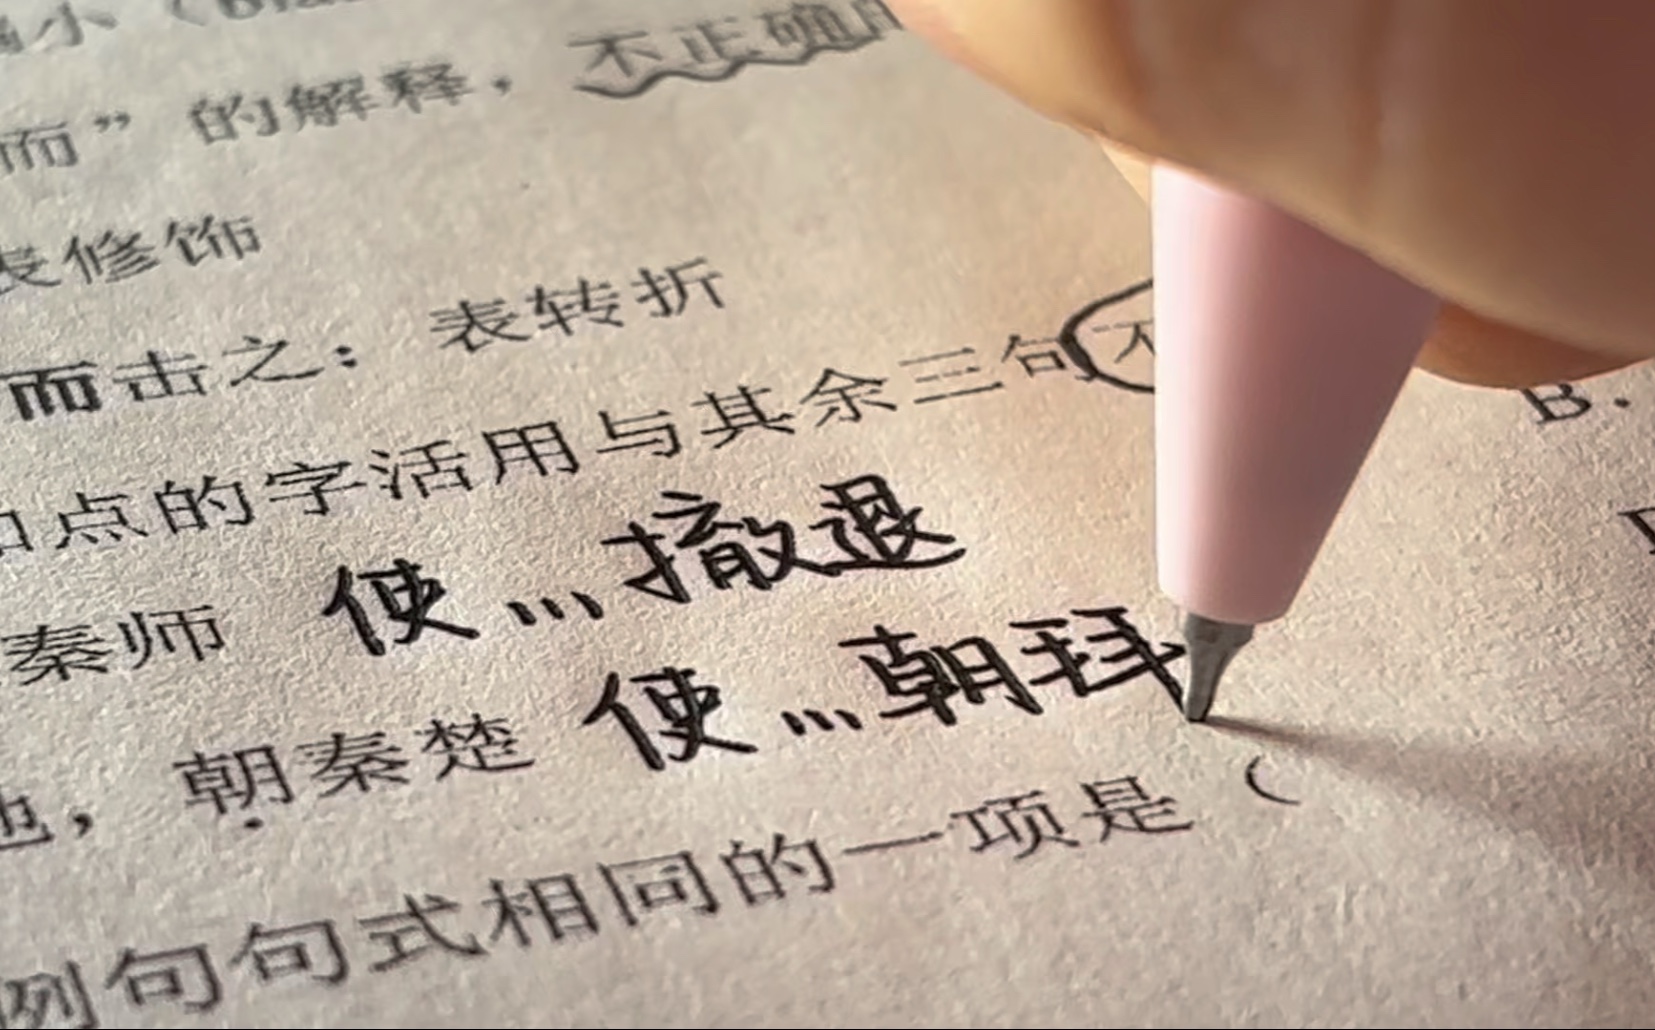 而”的解释，不正确
表修饰
而击之：表转折
点的字活用与其余三句不
B.
秦师 使…撤退
地，朝秦楚 使…朝拜
例句句式相同的一项是（